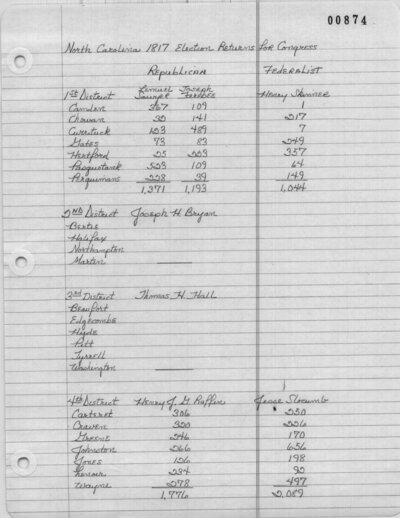 00874
North Carolina 1817 Election Returns for Congress
Republican Federalist
1st District Lemuel Sawyer Joseph Ferebee Henry Skinner
Camden 367 109 1
Chowan 32 141 217
Currituck 123 489 7
Gates 73 83 249
Hertford 25 223 357
Pasquotank 523 109 64
Perquimans 228 39 149
1,371 1,193 1,044
2nd District Joseph H. Bryan
Bertie
Halifax
Northampton
Martin ———
3rd District Thomas H. Hall
Beaufort
Edgecombe
Hyde
Pitt
Tyrrell
Washington ———
4th District Henry J. G. Ruffin Jesse Slocumb
Carteret 306 250
Craven 320 226
Greene 246 170
Johnston 266 656
Jones 126 198
Lenoir 234 92
Wayne 278 497
1,776 2,089